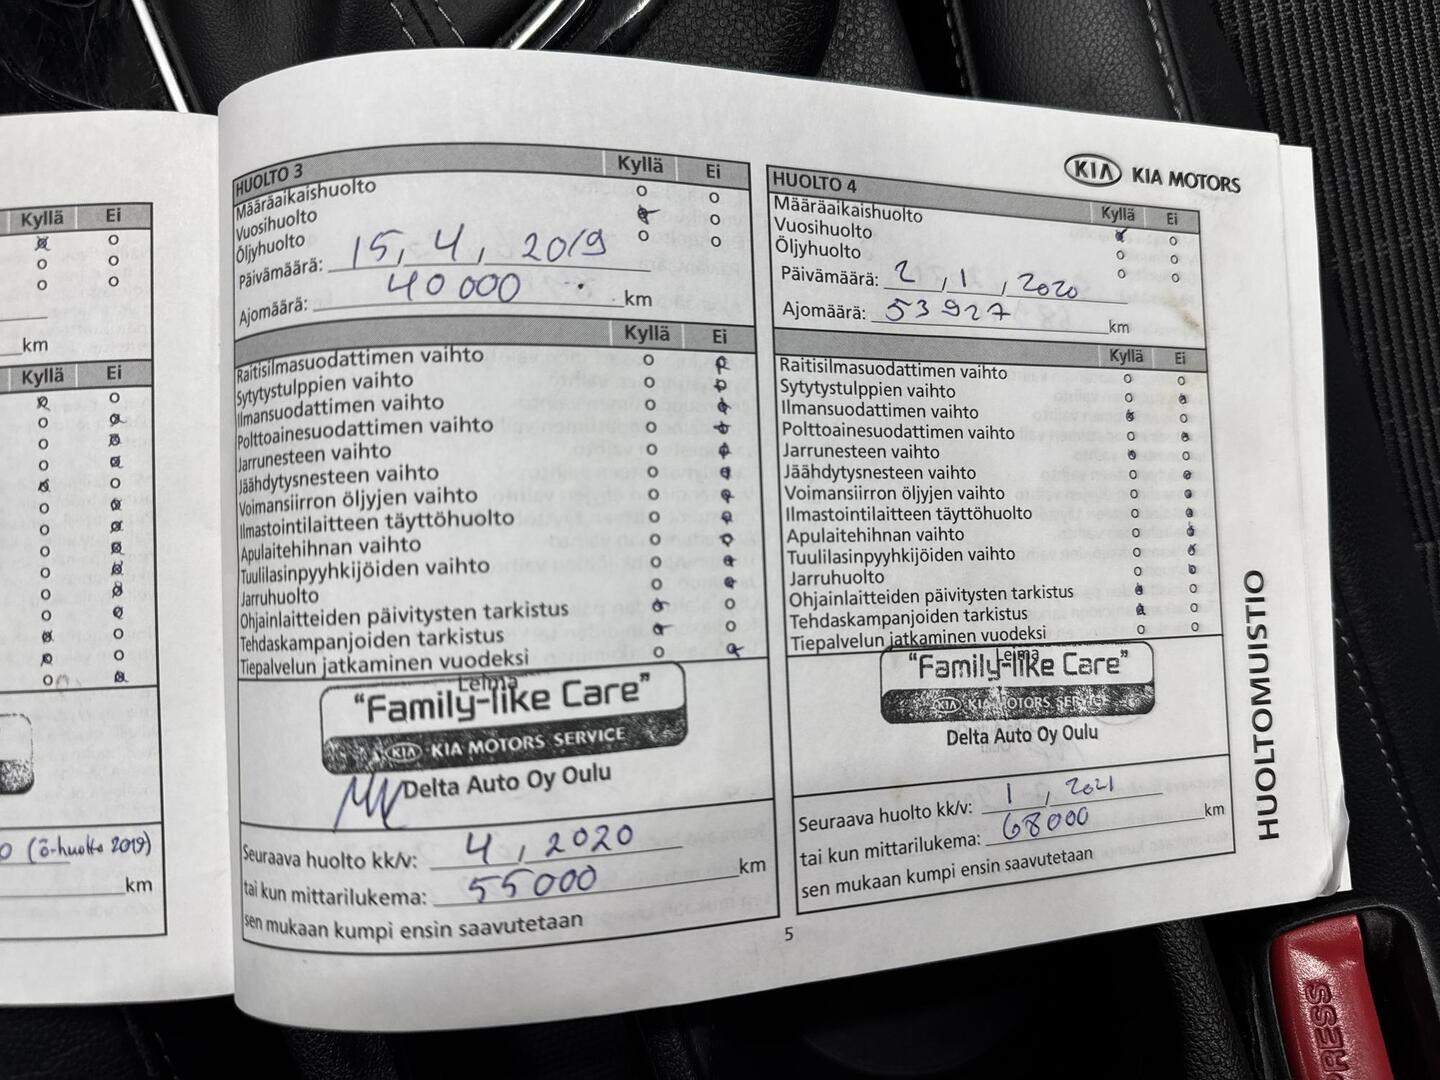 Kyllä Ei
km
Kyllä Ei
0 (ö-huolto 2019)
km
HUOLTO 3 Kyllä Ei
Määräaikaishuolto o o
Vuosihuolto
Öljyhuolto o o
Päivämäärä: 15, 4, 2019
Ajomäärä: 40 000 km
Kyllä Ei
Raitisilmasuodattimen vaihto
Sytytystulppien vaihto
Ilmansuodattimen vaihto
Polttoainesuodattimen vaihto
Jarrunesteen vaihto
Jäähdytysnesteen vaihto
Voimansiirron öljyjen vaihto
Ilmastointilaitteen täyttöhuolto
Apulaitehihnan vaihto
Tuulilasinpyyhkijöiden vaihto
Jarruhuolto
Ohjainlaitteiden päivitysten tarkistus
Tehdaskampanjoiden tarkistus
Tiepalvelun jatkaminen vuodeksi
Leima
"Family-like Care"
KIA KIA MOTORS SERVICE
Delta Auto Oy Oulu
Seuraava huolto kk/v: 4, 2020
tai kun mittarilukema: 55000 km
sen mukaan kumpi ensin saavutetaan
KIA KIA MOTORS
HUOLTO 4 Kyllä Ei
Määräaikaishuolto
Vuosihuolto
Öljyhuolto
Päivämäärä: 2, 1, 2020
Ajomäärä: 53 927 km
Kyllä Ei
Raitisilmasuodattimen vaihto
Sytytystulppien vaihto
Ilmansuodattimen vaihto
Polttoainesuodattimen vaihto
Jarrunesteen vaihto
Jäähdytysnesteen vaihto
Voimansiirron öljyjen vaihto
Ilmastointilaitteen täyttöhuolto
Apulaitehihnan vaihto
Tuulilasinpyyhkijöiden vaihto
Jarruhuolto
Ohjainlaitteiden päivitysten tarkistus
Tehdaskampanjoiden tarkistus
Tiepalvelun jatkaminen vuodeksi
Leima
"Family-like Care"
KIA KIA MOTORS SERVICE
Delta Auto Oy Oulu
Seuraava huolto kk/v: 1, 2021
tai kun mittarilukema: 68000 km
sen mukaan kumpi ensin saavutetaan
5
HUOLTOMUISTIO
PRESS